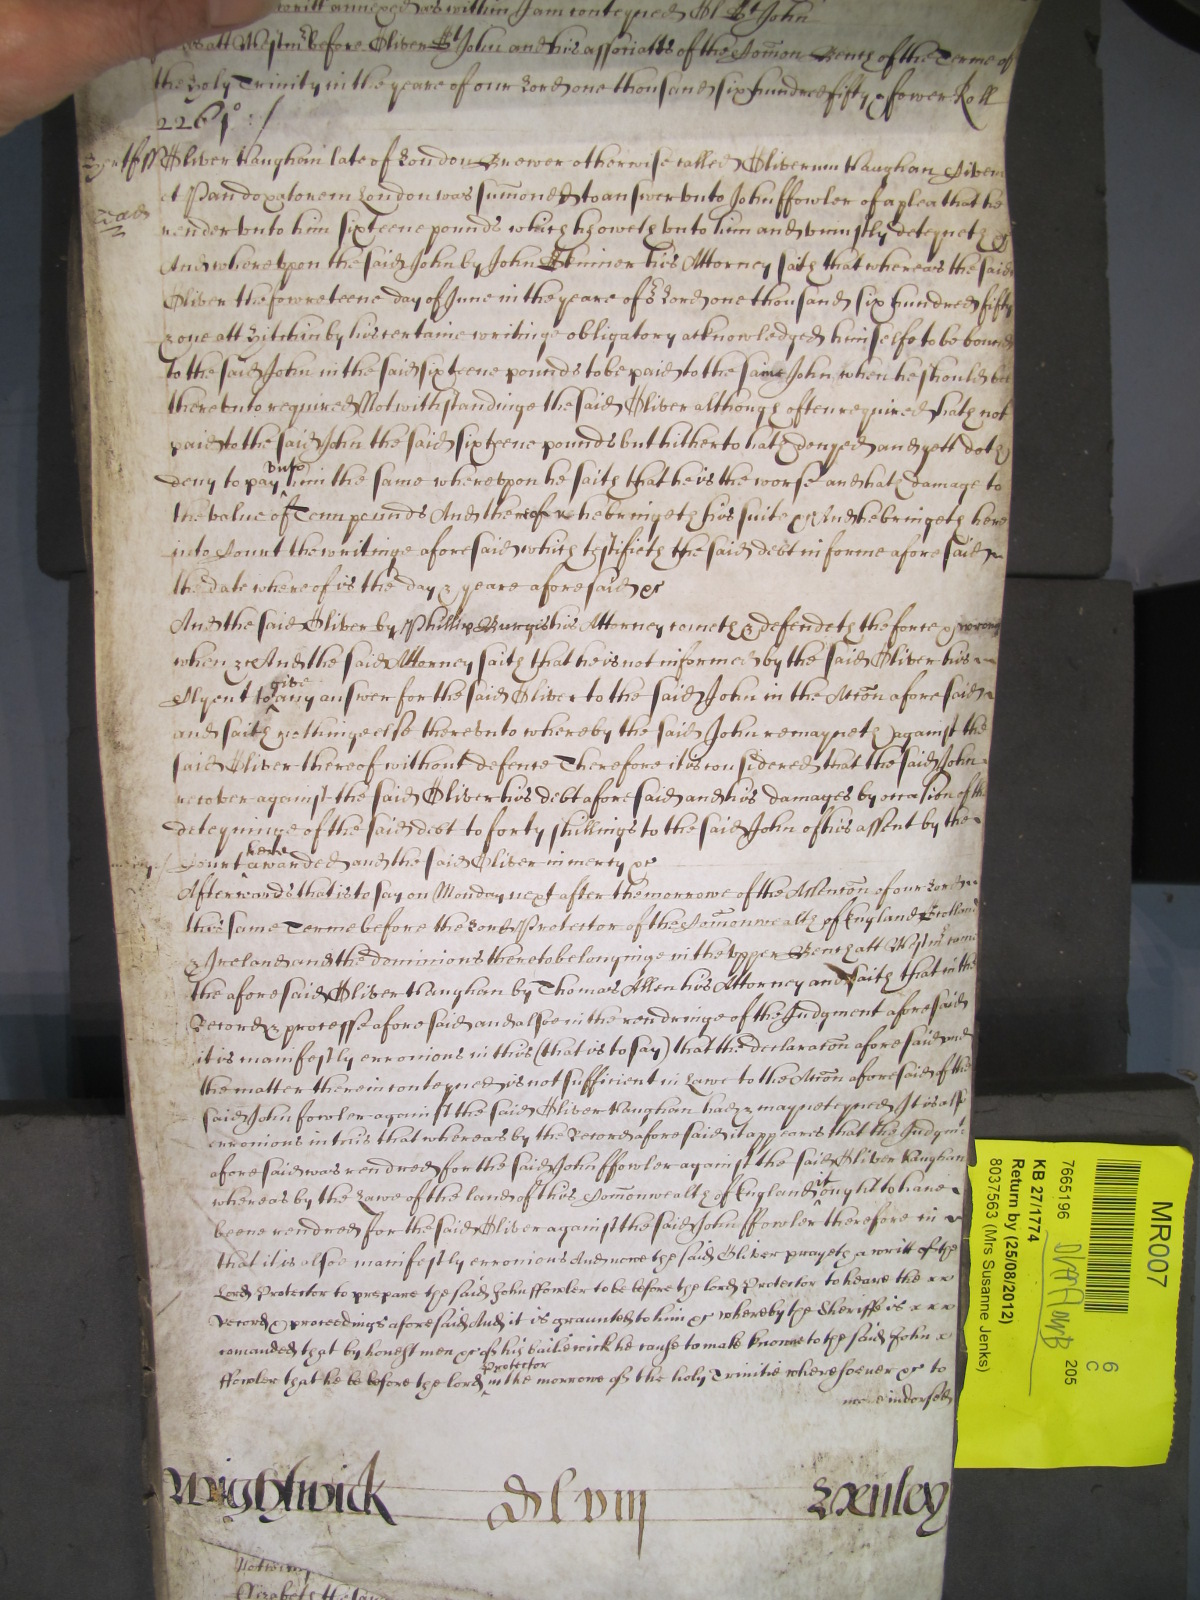 writt annexed as within I am conteyned Ol St John
att Westm before Oliver St John and his associatts of the Comon Bench of the Terme of
the holy Trinity in the yeare of our Lord one thousand six hundred fifty & fower Roll
2261
Hertf ss Oliver Vaughan late of London Brewer otherwise called Oliverum Vaughan Civem
et Pandoxatorem London was sumoned to answer unto John ffowler of a plea that he
render unto him sixteene pounds which he oweth unto him and uniustly deteyneth &c
And whereupon the said John by John Skinner his Attorney saith that whereas the said
Oliver the fowreteene day of June in the yeare of or Lord one thousand six hundred fifty
& one att Hitchin by his certaine writinge obligatory acknowledged himselfe to be bound
to the said John in the said sixteene pounds to be paid to the same John when he should be
thereunto required Notwithstandinge the said Oliver although often required hath not
paid to the said John the said sixteene pounds but hitherto hath denyed and yett doth
deny to pay unto him the same whereupon he saith that he is the worse and hath damage to
the value of Tenn pounds And thereof he bringeth his suite &c And he bringeth here
into Court the writinge aforesaid which testifieth the said debt in forme aforesaid
the date whereof is the day & yeare aforesaid &c
And the said Oliver by Phillip Burgis his Attorney cometh & defendeth the force & wrong
when &c And the said Attorney saith that he is not informed by the said Oliver his
Clyent to give any answer for the said Oliver to the said John in the Accon aforesaid
and saith nothinge else thereunto whereby the said John remayneth against the
said Oliver thereof without defence Therefore it is considered that the said John
recover against the said Oliver his debt aforesaid and his damages by occasion of the
deteyninge of the said debt to forty shillings to the said John of his assent by the
Court here awarded and the said Oliver in mercy &c
Afterwards that is to say on Monday next after the morrowe of the Ascencon of our Lord
this same Terme before the Lord Protector of the Comonwealth of England Scotland
& Ireland and the dominions thereto belonginge in the upper Bench att Westm came
the aforesaid Oliver Vaughan by Thomas Allen his Attorney and saith that in the
Record & processe aforesaid and alsoe in the rendringe of the Judgment aforesaid
it is manifestly erronious in this (that is to say) that the declaracon aforesaid and
the matter therein conteyned is not sufficient in Lawe to the Accon aforesaid of the
said John fowler against the said Oliver Vaughan had & maynteyned It is alsoe
erronious in this that whereas by the Record aforesaid it appeares that the Judgmt
aforesaid was rendred for the said John ffowler against the said Oliver Vaughan
whereas by the Lawe of the land of this Comonwealth of England it ought to have
beene rendred for the said Oliver against the said John ffowler therefore in
that it is alsoe manifestly erronious And now the said Oliver prayeth a writt of the
Lord Protector to prepare the said John ffowler to be before the lord Protector to heare the
Record & proceedings aforesaid And it is graunted to him &c whereby the Sheriffe is
comanded that by honest men &c of his bailiwick he cause to make knowne to the said John
ffowler that he be before the lord Protector in the morrowe of the holy Trinitie wheresoever &c to
indorsed
Wightwick Henley
MR007
6
C
205
7665196
KB 27/1774
Return by (25/08/2012)
8037563 (Mrs Susanne Jenks)